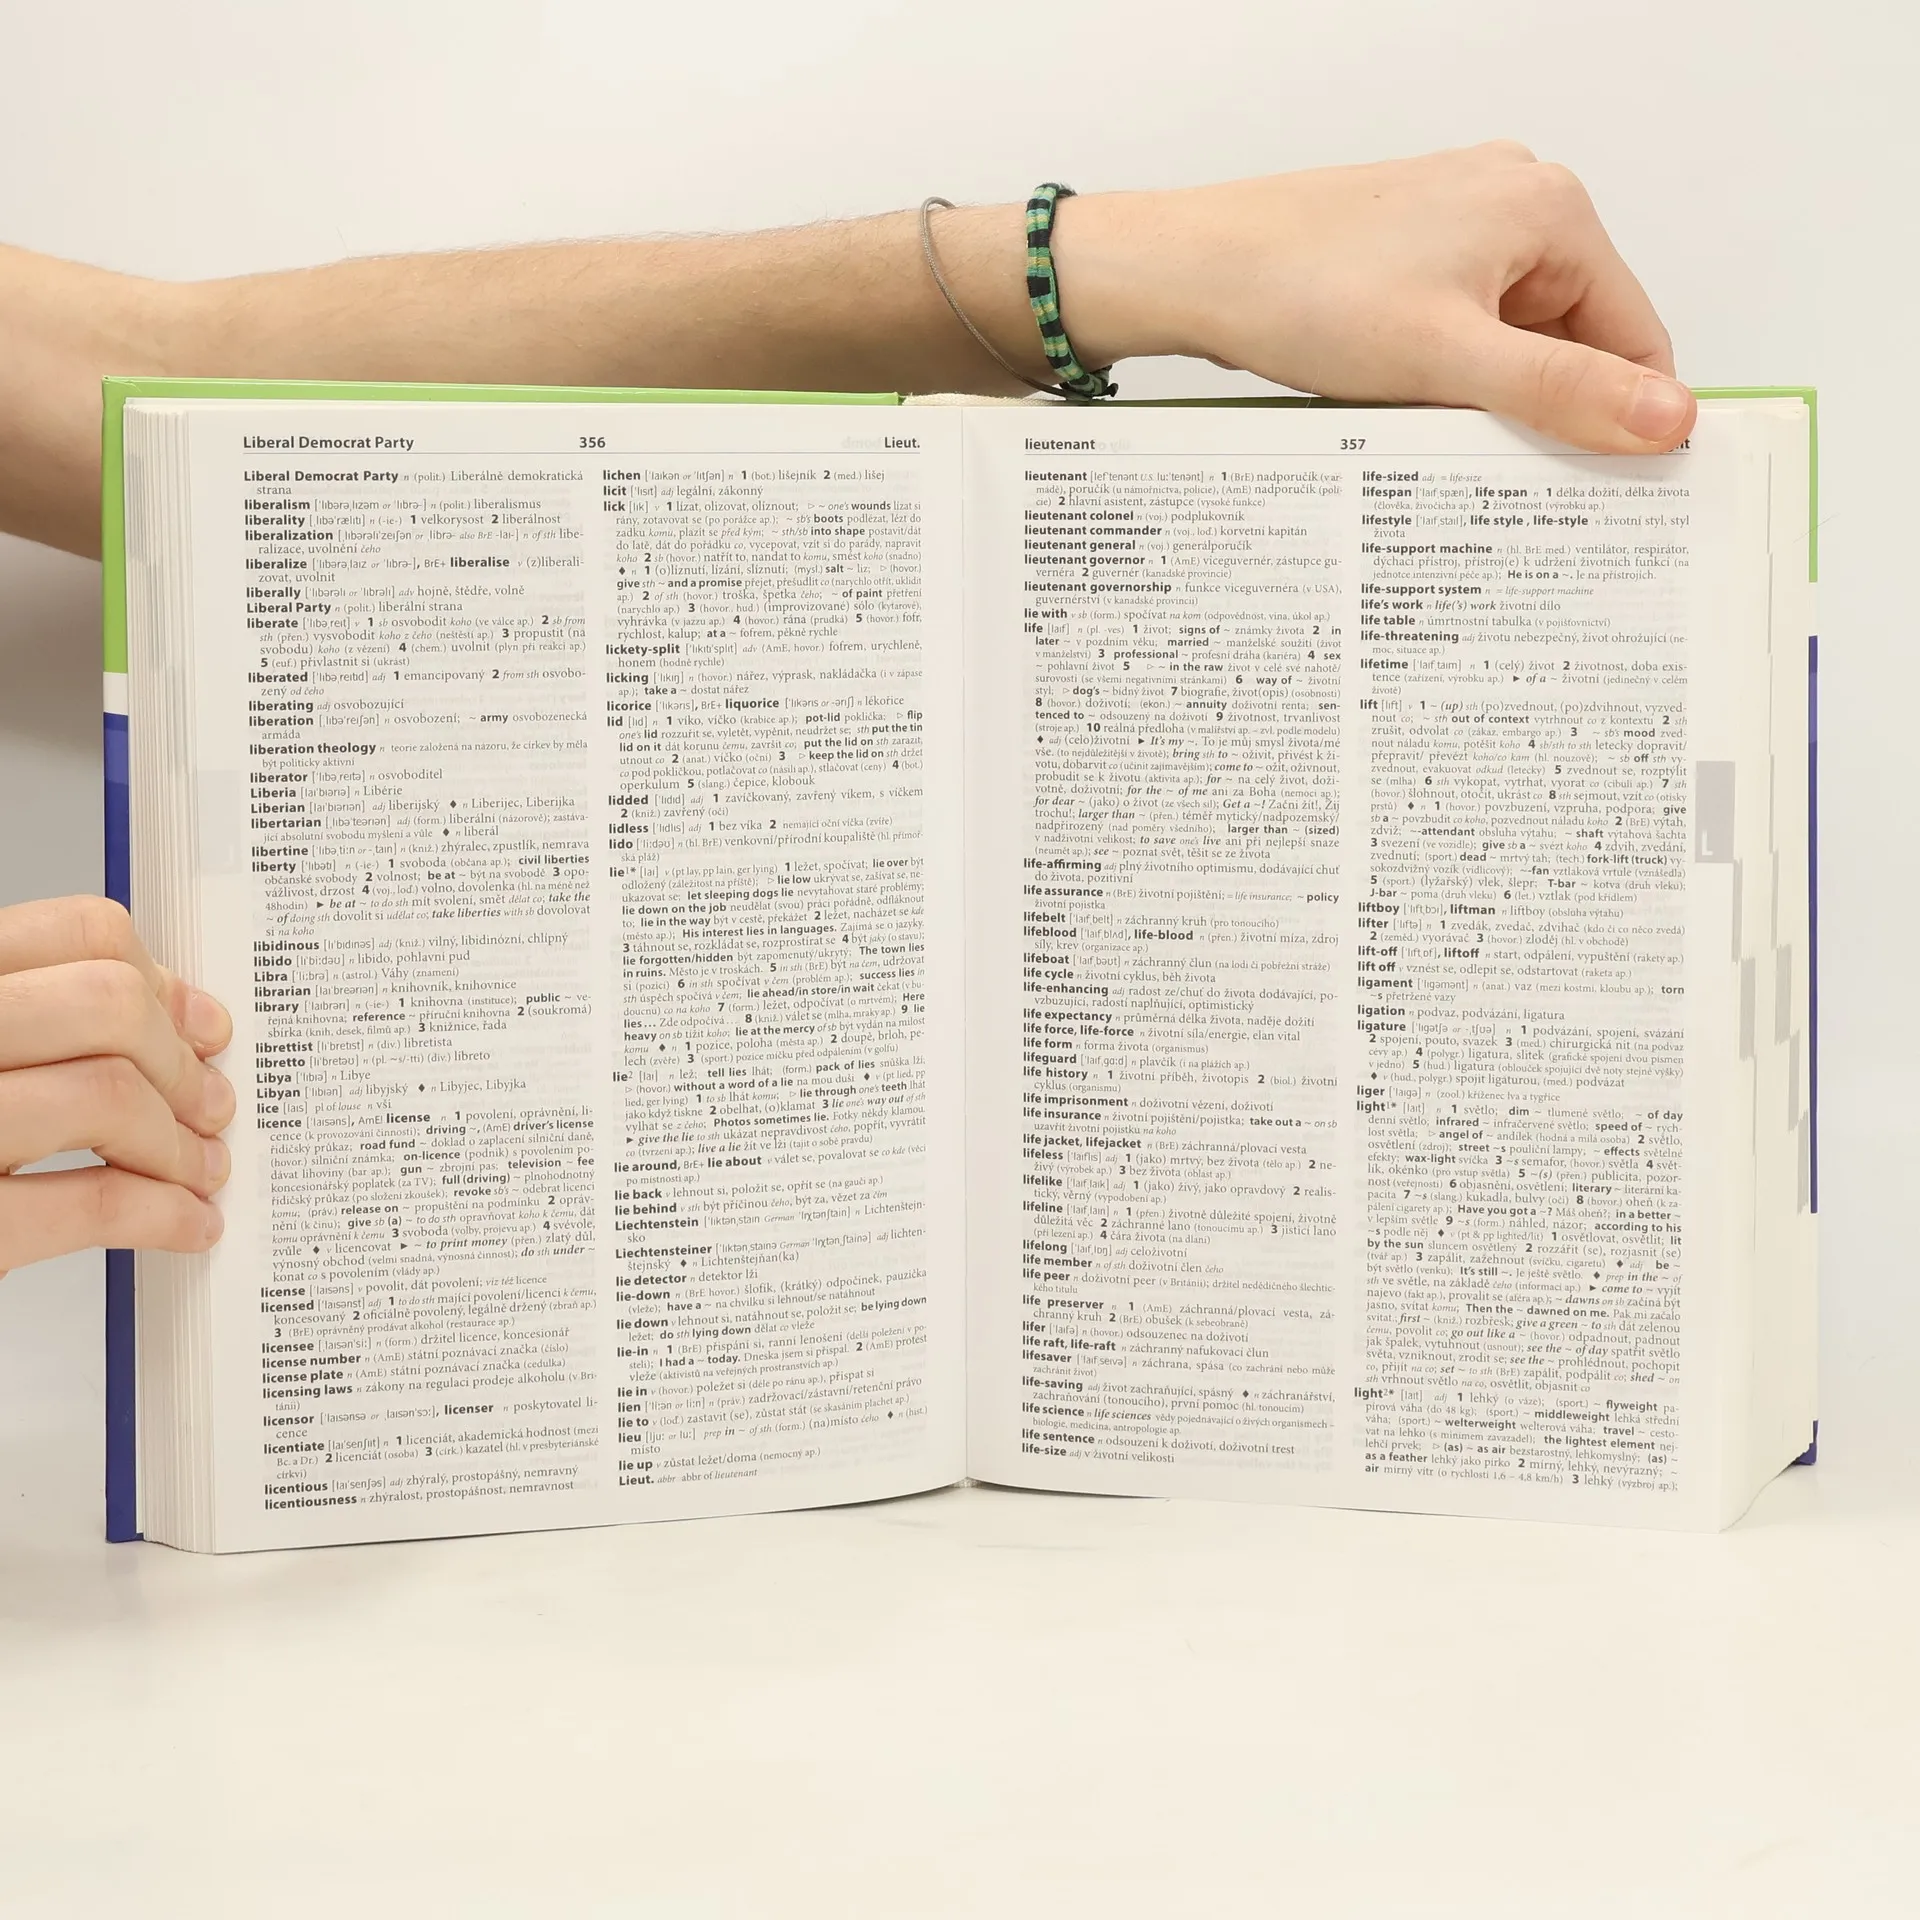 Liberal Democrat Party 356 Lieut.
Liberal Democrat Party n (polit.) Liberálně demokratická
strana
liberalism [ˈlɪbərəˌlɪzəm or ˈlɪbrə-] n (polit.) liberalismus
liberality [ˌlɪbəˈrælɪtɪ] n (-ie-) 1 velkorysost 2 liberálnost
liberalization [ˌlɪbərəlaɪˈzeɪʃən or ˌlɪbrə- also BrE -laɪ-] n of sth libe-
ralizace, uvolnění čeho
liberalize [ˈlɪbərəˌlaɪz or ˈlɪbrə-], BrE+ liberalise v (z)liberali-
zovat, uvolnit
liberally [ˈlɪbərəlɪ or ˈlɪbrəlɪ] adv hojně, štědře, volně
Liberal Party n (polit.) liberální strana
liberate [ˈlɪbəˌreɪt] v 1 sb osvobodit koho (ve válce ap.) 2 sb from
sth (přen.) vysvobodit koho z čeho (neštěstí ap.) 3 propustit (na
svobodu) koho (z vězení) 4 (chem.) uvolnit (plyn při reakci ap.)
5 (euf.) přivlastnit si (ukrást)
liberated [ˈlɪbəˌreɪtɪd] adj 1 emancipovaný 2 from sth osvobo-
zený od čeho
liberating adj osvobozující
liberation [ˌlɪbəˈreɪʃən] n osvobození; ~ army osvobozenecká
armáda
liberation theology n teorie založená na názoru, že církev by měla
být politicky aktivní
liberator [ˈlɪbəˌreɪtə] n osvoboditel
Liberia [laɪˈbɪərɪə] n Libérie
Liberian [laɪˈbɪərɪən] adj liberijský ♦ n Liberijec, Liberijka
libertarian [ˌlɪbəˈteərɪən] adj (form.) liberální (názorově); zastáva-
jící absolutní svobodu myšlení a vůle ♦ n liberál
libertine [ˈlɪbəˌtiːn or -ˌtaɪn] n (kniž.) zhýralec, zpustlík, nemrava
liberty [ˈlɪbətɪ] n (-ie-) 1 svoboda (občana ap.); civil liberties
občanské svobody 2 volnost; be at ~ být na svobodě 3 opo-
vážlivost, drzost 4 (voj., lod.) volno, dovolenka (hl. na méně než
48hodin) ► be at ~ to do sth mít svolení, smět dělat co; take the
~ of doing sth dovolit si udělat co; take liberties with sb dovolovat
si na koho
libidinous [lɪˈbɪdɪnəs] adj (kniž.) vilný, libidinózní, chlípný
libido [lɪˈbiːdəʊ] n libido, pohlavní pud
Libra [ˈliːbrə] n (astrol.) Váhy (znamení)
librarian [laɪˈbreərɪən] n knihovník, knihovnice
library [ˈlaɪbrərɪ] n (-ie-) 1 knihovna (instituce); public ~ ve-
řejná knihovna; reference ~ příruční knihovna 2 (soukromá)
sbírka (knih, desek, filmů ap.) 3 knižnice, řada
librettist [lɪˈbretɪst] n (div.) libretista
libretto [lɪˈbretəʊ] n (pl. ~s/-tti) (div.) libreto
Libya [ˈlɪbɪə] n Libye
Libyan [ˈlɪbɪən] adj libyjský ♦ n Libyjec, Libyjka
lice [laɪs] pl of louse n vši
licence [ˈlaɪsəns], AmE license n 1 povolení, oprávnění, li-
cence (k provozování činnosti); driving ~, (AmE) driver's license
řidičský průkaz; road fund ~ doklad o zaplacení silniční daně,
(hovor.) silniční známka; on-licence (podnik) s povolením po-
dávat lihoviny (bar ap.); gun ~ zbrojní pas; television ~ fee
koncesionářský poplatek (za TV); full (driving) ~ plnohodnotný
řidičský průkaz (po složení zkoušek); revoke sb's ~ odebrat licenci
komu; (práv.) release on ~ propuštění na podmínku 2 opráv-
nění (k činu); give sb (a) ~ to do sth opravňovat koho k čemu, dát
komu oprávnění k čemu 3 svoboda (volby, projevu ap.) 4 svévole,
zvůle ♦ v licencovat ► ~ to print money (přen.) zlatý důl,
výnosný obchod (velmi snadná, výnosná činnost); do sth under ~
konat co s povolením (vlády ap.)
license [ˈlaɪsəns] v povolit, dát povolení; viz též licence
licensed [ˈlaɪsənst] adj 1 to do sth mající povolení/licenci k čemu,
koncesovaný 2 oficiálně povolený, legálně držený (zbraň ap.)
3 (BrE) oprávněný prodávat alkohol (restaurace ap.)
licensee [ˌlaɪsənˈsiː] n (form.) držitel licence, koncesionář
license number n (AmE) státní poznávací značka (číslo)
license plate n (AmE) státní poznávací značka (cedulka)
licensing laws n zákony na regulaci prodeje alkoholu (v Bri-
tánii)
licensor [ˈlaɪsənsə or ˌlaɪsənˈsɔː], licenser n poskytovatel li-
cence
licentiate [laɪˈsenʃɪɪt] n 1 licenciát, akademická hodnost (mezi
Bc. a Dr.) 2 licenciát (osoba) 3 (círk.) kazatel (hl. v presbyteriánské
církvi)
licentious [laɪˈsenʃəs] adj zhýralý, prostopášný, nemravný
licentiousness n zhýralost, prostopášnost, nemravnost
lichen [ˈlaɪkən or ˈlɪtʃən] n 1 (bot.) lišejník 2 (med.) lišej
licit [ˈlɪsɪt] adj legální, zákonný
lick [lɪk] v 1 lízat, olizovat, olíznout; ▷ ~ one's wounds lízat si
rány, zotavovat se (po porážce ap.); ~ sb's boots podlézat, lézt do
zadku komu, plazit se před kým; ~ sth/sb into shape postavit/dát
do latě, dát do pořádku co, vycepovat, vzít si do parády, napravit
koho 2 sb (hovor.) natřít to, nandat to komu, smést koho (snadno)
♦ n 1 (o)líznutí, lízání, slíznutí; (mysl.) salt ~ liz; ▷ (hovor.)
give sth ~ and a promise přejet, přešudlit co (narychlo otřít, uklidit
ap.) 2 of sth (hovor.) troška, špetka čeho; ~ of paint přetření
(narychlo ap.) 3 (hovor. hud.) (improvizované) sólo (kytarové),
vyhrávka (v jazzu ap.) 4 (hovor.) rána (prudká) 5 (hovor.) fofr,
rychlost, kalup; at a ~ fofrem, pěkně rychle
lickety-split [ˈlɪkɪtɪˈsplɪt] adv (AmE, hovor.) fofrem, urychleně,
honem (hodně rychle)
licking [ˈlɪkɪŋ] n (hovor.) nářez, výprask, nakládačka (i v zápase
ap.); take a ~ dostat nářez
licorice [ˈlɪkərɪs], BrE+ liquorice [ˈlɪkərɪs or -ərɪʃ] n lékořice
lid [lɪd] n 1 víko, víčko (krabice ap.); pot-lid poklička; ▷ flip
one's lid rozzuřit se, vyletět, vypěnit, neudržet se; sth put the tin
lid on it dát korunu čemu, završit co; put the lid on sth zarazit,
utnout co 2 (anat.) víčko (oční) 3 ▷ keep the lid on sth držet
co pod pokličkou, potlačovat co (násilí ap.), stlačovat (ceny) 4 (bot.)
operkulum 5 (slang.) čepice, klobouk
lidded [ˈlɪdɪd] adj 1 zavíčkovaný, zavřený víkem, s víčkem
2 (kniž.) zavřený (oči)
lidless [ˈlɪdlɪs] adj 1 bez víka 2 nemající oční víčka (zvíře)
lido [ˈliːdəʊ] n (hl. BrE) venkovní/přírodní koupaliště (hl. přímoř-
ská pláž)
lie¹* [laɪ] v (pt lay, pp lain, ger lying) 1 ležet, spočívat; lie over být
odložený (záležitost na příště); ▷ lie low ukrývat se, zašívat se, ne-
ukazovat se; let sleeping dogs lie nevytahovat staré problémy;
lie down on the job neudělat (svou) práci pořádně, odfláknout
to; lie in the way být v cestě, překážet 2 ležet, nacházet se kde
(město ap.); His interest lies in languages. Zajímá se o jazyky.
3 táhnout se, rozkládat se, rozprostírat se 4 být jaký (o stavu);
lie forgotten/hidden být zapomenutý/ukrytý; The town lies
in ruins. Město je v troskách. 5 in sth (BrE) být na čem, udržovat
si (pozici) 6 in sth spočívat v čem (problém ap.); success lies in
sth úspěch spočívá v čem; lie ahead/in store/in wait čekat (v bu-
doucnu) co na koho 7 (form.) ležet, odpočívat (o mrtvém); Here
lies… Zde odpočívá… 8 (kniž.) válet se (mlha, mraky ap.) 9 lie
heavy on sb tížit koho; lie at the mercy of sb být vydán na milost
komu ♦ n 1 pozice, poloha (města ap.) 2 doupě, brloh, pe-
lech (zvěře) 3 (sport.) pozice míčku před odpálením (v golfu)
lie² [laɪ] n lež; tell lies lhát; (form.) pack of lies snůška lží;
▷ (hovor.) without a word of a lie na mou duši ♦ v (pt lied, pp
lied, ger lying) 1 to sb lhát komu; ▷ lie through one's teeth lhát
jako když tiskne 2 obelhat, (o)klamat 3 lie one's way out of sth
vylhat se z čeho; Photos sometime lie. Fotky někdy klamou.
► give the lie to sth ukázat nepravdivost čeho, popřít, vyvrátit
co (tvrzení ap.); live a lie žít ve lži (tajit o sobě pravdu)
lie around, BrE+ lie about v válet se, povalovat se co kde (věci
po místnosti ap.)
lie back v lehnout si, položit se, opřít se (na gauči ap.)
lie behind v sth být příčinou čeho, být za, vězet za čím
Liechtenstein [ˈlɪktənˌstaɪn German ˈlɪçtənʃtaɪn] n Lichtenštejn-
sko
Liechtensteiner [ˈlɪktənˌstaɪnə German ˈlɪçtənˌʃtaɪnə] adj lichten-
štejnský ♦ n Lichtenštejňan(ka)
lie detector n detektor lži
lie-down n (BrE hovor.) šlofík, (krátký) odpočinek, pauzička
(vleže); have a ~ na chvilku si lehnout/se natáhnout
lie down v lehnout si, natáhnout se, položit se; be lying down
ležet; do sth lying down dělat co vleže
lie-in n 1 (BrE) přispání si, ranní lenošení (delší poležení v po-
steli); I had a ~ today. Dneska jsem si přispal. 2 (AmE) protest
vleže (aktivistů na veřejných prostranstvích ap.)
lie in v (hovor.) poležet si (déle po ránu ap.), přispat si
lien [ˈliːən or liːn] n (práv.) zadržovací/zástavní/retenční právo
lie to v (loď.) zastavit (se), zůstat stát (se skasáním plachet ap.)
lieu [ljuː or luː] prep in ~ of sth (form.) (na)místo čeho ♦ n (hist.)
místo
lie up v zůstat ležet/doma (nemocný ap.)
Lieut. abbr abbr of lieutenant
lieutenant 357
lieutenant [lefˈtenənt U.S. luːˈtenənt] n 1 (BrE) nadporučík (v ar-
mádě), poručík (u námořnictva, policie), (AmE) nadporučík (poli-
cie) 2 hlavní asistent, zástupce (vysoké funkce)
lieutenant colonel n (voj.) podplukovník
lieutenant commander n (voj., loď.) korvetní kapitán
lieutenant general n (voj.) generálporučík
lieutenant governor n 1 (AmE) viceguvernér, zástupce gu-
vernéra 2 guvernér (kanadské provincie)
lieutenant governorship n funkce viceguvernéra (v USA),
guvernérství (v kanadské provincii)
lie with v sb (form.) spočívat na kom (odpovědnost, vina, úkol ap.)
life [laɪf] n (pl. -ves) 1 život; signs of ~ známky života 2 in
later ~ v pozdním věku; married ~ manželské soužití (život
v manželství) 3 professional ~ profesní dráha (kariéra) 4 sex
~ pohlavní život 5 ▷ ~ in the raw život v celé své nahotě/
surovosti (se všemi negativními stránkami) 6 way of ~ životní
styl; ▷ dog's ~ bídný život 7 biografie, život(opis) (osobnosti)
8 (hovor.) doživotí; (ekon.) ~ annuity doživotní renta; sen-
tenced to ~ odsouzený na doživotí 9 životnost, trvanlivost
(stroje ap.) 10 reálná předloha (v malířství ap. – zvl. podle modelu)
♦ adj (celo)životní ► It's my ~. To je můj smysl života/mé
vše. (to nejdůležitější v životě); bring sth to ~ oživit, přivést k ži-
votu, dobarvit co (učinit zajímavějším); come to ~ ožít, oživnout,
probudit se k životu (aktivita ap.); for ~ na celý život, doži-
votně, doživotní; for the ~ of me ani za Boha (nemoci ap.);
for dear ~ (jako) o život (ze všech sil); Get a ~! Začni žít!, Žij
trochu!; larger than ~ (přen.) téměř mytický/nadpozemský/
nadpřirozený (nad poměry všedního); larger than ~ (sized)
v nadživotní velikosti; to save one's live ani při nejlepší snaze
(neumět ap.); see ~ poznat svět, těšit se ze života
life-affirming adj plný životního optimismu, dodávající chuť
do života, pozitivní
life assurance n (BrE) životní pojištění; = life insurance; ~ policy
životní pojistka
lifebelt [ˈlaɪfˌbelt] n záchranný kruh (pro tonoucího)
lifeblood [ˈlaɪfˌblʌd], life-blood n (přen.) životní míza, zdroj
síly, krev (organizace ap.)
lifeboat [ˈlaɪfˌbəʊt] n záchranný člun (na lodi či pobřežní stráže)
life cycle n životní cyklus, běh života
life-enhancing adj radost ze/chuť do života dodávající, po-
vzbuzující, radostí naplňující, optimistický
life expectancy n průměrná délka života, naděje dožití
life force, life-force n životní síla/energie, elan vital
life form n forma života (organismus)
lifeguard [ˈlaɪfˌgɑːd] n plavčík (i na plážích ap.)
life history n 1 životní příběh, životopis 2 (biol.) životní
cyklus (organismu)
life imprisonment n doživotní vězení, doživotí
life insurance n životní pojištění/pojistka; take out a ~ on sb
uzavřít životní pojistku na koho
life jacket, lifejacket n (BrE) záchranná/plovací vesta
lifeless [ˈlaɪflɪs] adj 1 (jako) mrtvý, bez života (tělo ap.) 2 ne-
živý (výrobek ap.) 3 bez života (oblast ap.)
lifelike [ˈlaɪfˌlaɪk] adj 1 (jako) živý, jako opravdový 2 realis-
tický, věrný (vypodobení ap.)
lifeline [ˈlaɪfˌlaɪn] n 1 (přen.) životně důležité spojení, životně
důležitá věc 2 záchranné lano (tonoucímu ap.) 3 jisticí lano
(při lezení ap.) 4 čára života (na dlani)
lifelong [ˈlaɪfˌlɒŋ] adj celoživotní
life member n of sth doživotní člen čeho
life peer n doživotní peer (v Británii); držitel nedědičného šlechtic-
kého titulu
life preserver n 1 (AmE) záchranná/plovací vesta, zá-
chranný kruh 2 (BrE) obušek (k sebeobraně)
lifer [ˈlaɪfə] n (hovor.) odsouzenec na doživotí
life raft, life-raft n záchranný nafukovací člun
lifesaver [ˈlaɪfˌseɪvə] n záchrana, spása (co zachrání nebo může
zachránit život)
life-saving adj život zachraňující, spásný ♦ n záchranářství,
zachraňování (tonoucího), první pomoc (hl. tonoucím)
life science n life sciences vědy pojednávající o živých organismech –
biologie, medicína, antropologie ap.
life sentence n odsouzení k doživotí, doživotní trest
life-size adj v životní velikosti
life-sized adj = life-size
lifespan [ˈlaɪfˌspæn], life span n 1 délka dožití, délka života
(člověka, živočicha ap.) 2 životnost (výrobku ap.)
lifestyle [ˈlaɪfˌstaɪl], life style , life-style n životní styl, styl
života
life-support machine n (hl. BrE med.) ventilátor, respirátor,
dýchací přístroj, přístroj(e) k udržení životních funkcí (na
jednotce intenzivní péče ap.); He is on a ~. Je na přístrojích.
life-support system n = life-support machine
life's work n life('s) work životní dílo
life table n úmrtnostní tabulka (v pojišťovnictví)
life-threatening adj životu nebezpečný, život ohrožující (ne-
moc, situace ap.)
lifetime [ˈlaɪfˌtaɪm] n 1 (celý) život 2 životnost, doba exis-
tence (zařízení, výrobku ap.) ► of a ~ životní (jedinečný v celém
životě)
lift [lɪft] v 1 ~ (up) sth (po)zvednout, (po)zdvihnout, vyzved-
nout co; ~ sth out of context vytrhnout co z kontextu 2 sth
zrušit, odvolat co (zákaz, embargo ap.) 3 ~ sb's mood zved-
nout náladu komu, potěšit koho 4 sb/sth to sth letecky dopravit/
přepravit/ převézt koho/co kam (hl. nouzově); ~ sb off sth vy-
zvednout, evakuovat odkud (letecky) 5 zvednout se, rozptýlit
se (mlha) 6 sth vykopat, vytrhat, vyorat co (cibuli ap.) 7 sth
(hovor.) šlohnout, otočit, ukrást co 8 sth sejmout, vzít co (otisky
prstů) ♦ n 1 (hovor.) povzbuzení, vzpruha, podpora; give
sb a ~ povzbudit co koho, pozvednout náladu komu 2 (BrE) výtah,
zdviž; ~-attendant obsluha výtahu; ~ shaft výtahová šachta
3 svezení (ve vozidle); give sb a ~ svézt koho 4 zdvih, zvedání,
zvednutí; (sport.) dead ~ mrtvý tah; (tech.) fork-lift (truck) vy-
sokozdvižný vozík (vidlicový); ~-fan vztlaková vrtule (vznášedla)
5 (sport.) (lyžařský) vlek, šlepr; T-bar ~ kotva (druh vleku);
J-bar ~ poma (druh vleku) 6 (let.) vztlak (pod křídlem)
liftboy [ˈlɪftˌbɔɪ], liftman n liftboy (obsluha výtahu)
lifter [ˈlɪftə] n 1 zvedák, zvedač, zdvihač (kdo či co něco zvedá)
2 (zeměd.) vyorávač 3 (hovor.) zloděj (hl. v obchodě)
lift-off [ˈlɪftˌɒf], liftoff n start, odpálení, vypuštění (rakety ap.)
lift off v vznést se, odlepit se, odstartovat (raketa ap.)
ligament [ˈlɪgəmənt] n (anat.) vaz (mezi kostmi, kloubu ap.); torn
~s přetržené vazy
ligation n podvaz, podvázání, ligatura
ligature [ˈlɪgətʃə or -ˌtʃʊə] n 1 podvázání, spojení, svázání
2 spojení, pouto, svazek 3 (med.) chirurgická nit (na podvaz
cévy ap.) 4 (polygr.) ligatura, slitek (grafické spojení dvou písmen
v jedno) 5 (hud.) ligatura (oblouček spojující dvě noty stejné výšky)
♦ v (hud., polygr.) spojit ligaturou, (med.) podvázat
liger [ˈlaɪgə] n (zool.) kříženec lva a tygřice
light¹* [laɪt] n 1 světlo; dim ~ tlumené světlo; ~ of day
denní světlo; infrared ~ infračervené světlo; speed of ~ rych-
lost světla; ▷ angel of ~ andílek (hodná a milá osoba) 2 světlo,
osvětlení (zdroj); street ~s pouliční lampy; ~ effects světelné
efekty; wax-light svíčka 3 ~s semafor, (hovor.) světla 4 svět-
lík, okénko (pro vstup světla) 5 ~(s) (přen.) publicita, pozor-
nost (veřejnosti) 6 objasnění, osvětlení; literary ~ literární ka-
pacita 7 ~s (slang.) kukadla, bulvy (oči) 8 (hovor.) oheň (k za-
pálení cigarety ap.); Have you got a ~? Máš oheň?; in a better ~
v lepším světle 9 ~s (form.) náhled, názor; according to his
~s podle něj ♦ v (pt & pp lighted/lit) 1 osvětlovat, osvětlit; lit
by the sun sluncem osvětlený 2 rozzářit (se), rozjasnit (se)
(tvář ap.) 3 zapálit, zažehnout (svíčku, cigaretu) ♦ adj be ~
být světlo (venku); It's still ~. Je ještě světlo. ♦ prep in the ~ of
sth ve světle, na základě čeho (informací ap.) ► come to ~ vyjít
najevo (fakt ap.), provalit se (aféra ap.); ~ dawns on sb začíná být
jasno, svítat komu; Then the ~ dawned on me. Pak mi začalo
svítat.; first ~ (kniž.) rozbřesk; give a green ~ to sth dát zelenou
čemu, povolit co; go out like a ~ (hovor.) odpadnout, padnout
jak špalek, vytuhnout (usnout); see the ~ of day spatřit světlo
světa, vzniknout, zrodit se; see the ~ prohlédnout, pochopit
co, přijít na co; set ~ to sth (BrE) zapálit, podpálit co; shed ~ on
sth vrhnout světlo na co, osvětlit, objasnit co
light²* [laɪt] adj 1 lehký (o váze); (sport.) ~ flyweight pa-
pírová váha (do 48 kg); (sport.) ~ middleweight lehká střední
váha; (sport.) ~ welterweight velterová váha; travel ~ cesto-
vat na lehko (s minimem zavazadel); the lightest element nej-
lehčí prvek; ▷ (as) ~ as air bezstarostný, lehkomyslný; (as) ~
as a feather lehký jako pírko 2 mírný, lehký, nevýrazný; ~
air mírný vítr (o rychlosti 1,6 – 4,8 km/h) 3 lehký (výzbroj ap.);
L